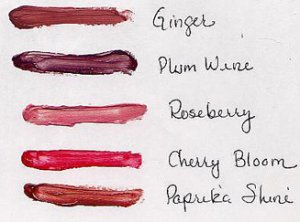 Ginger
Plum Wine
Roseberry
Cherry Bloom
Paprika Shine